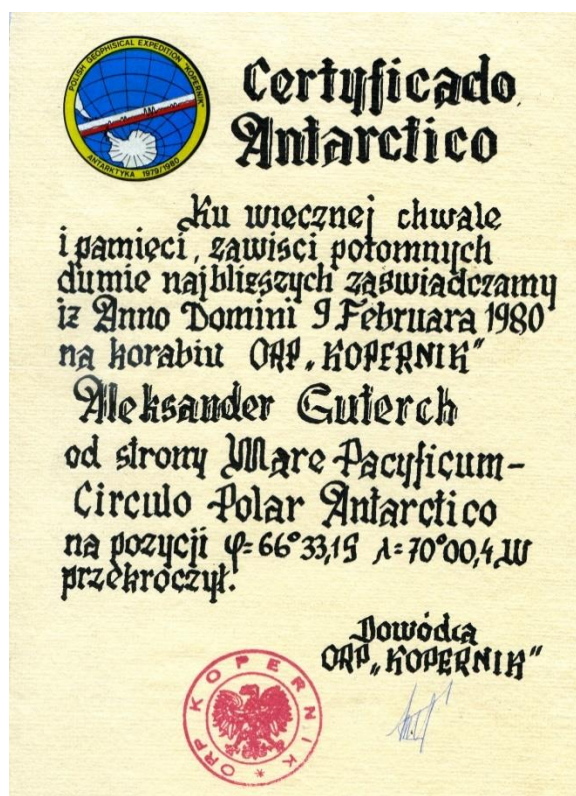 POLISH GEOPHISICAL EXPEDITION "KOPERNIK"
ANTARKTYKA 1979/1980
Certyficado
Antarctico
Ku wiecznej chwale
i pamięci, zawisci potomnych
dumie najbliższych zaświadczamy
iż Anno Domini 9 Februara 1980
na korabiu ORP „KOPERNIK"
Aleksander Guterch
od strony Mare Pacyficum-
Circulo Polar Antarctico
na pozycji φ=66°33,1S λ=70°00,4W
przekroczył.
Dowódca
ORP „KOPERNIK"
ORP KOPERNIK *